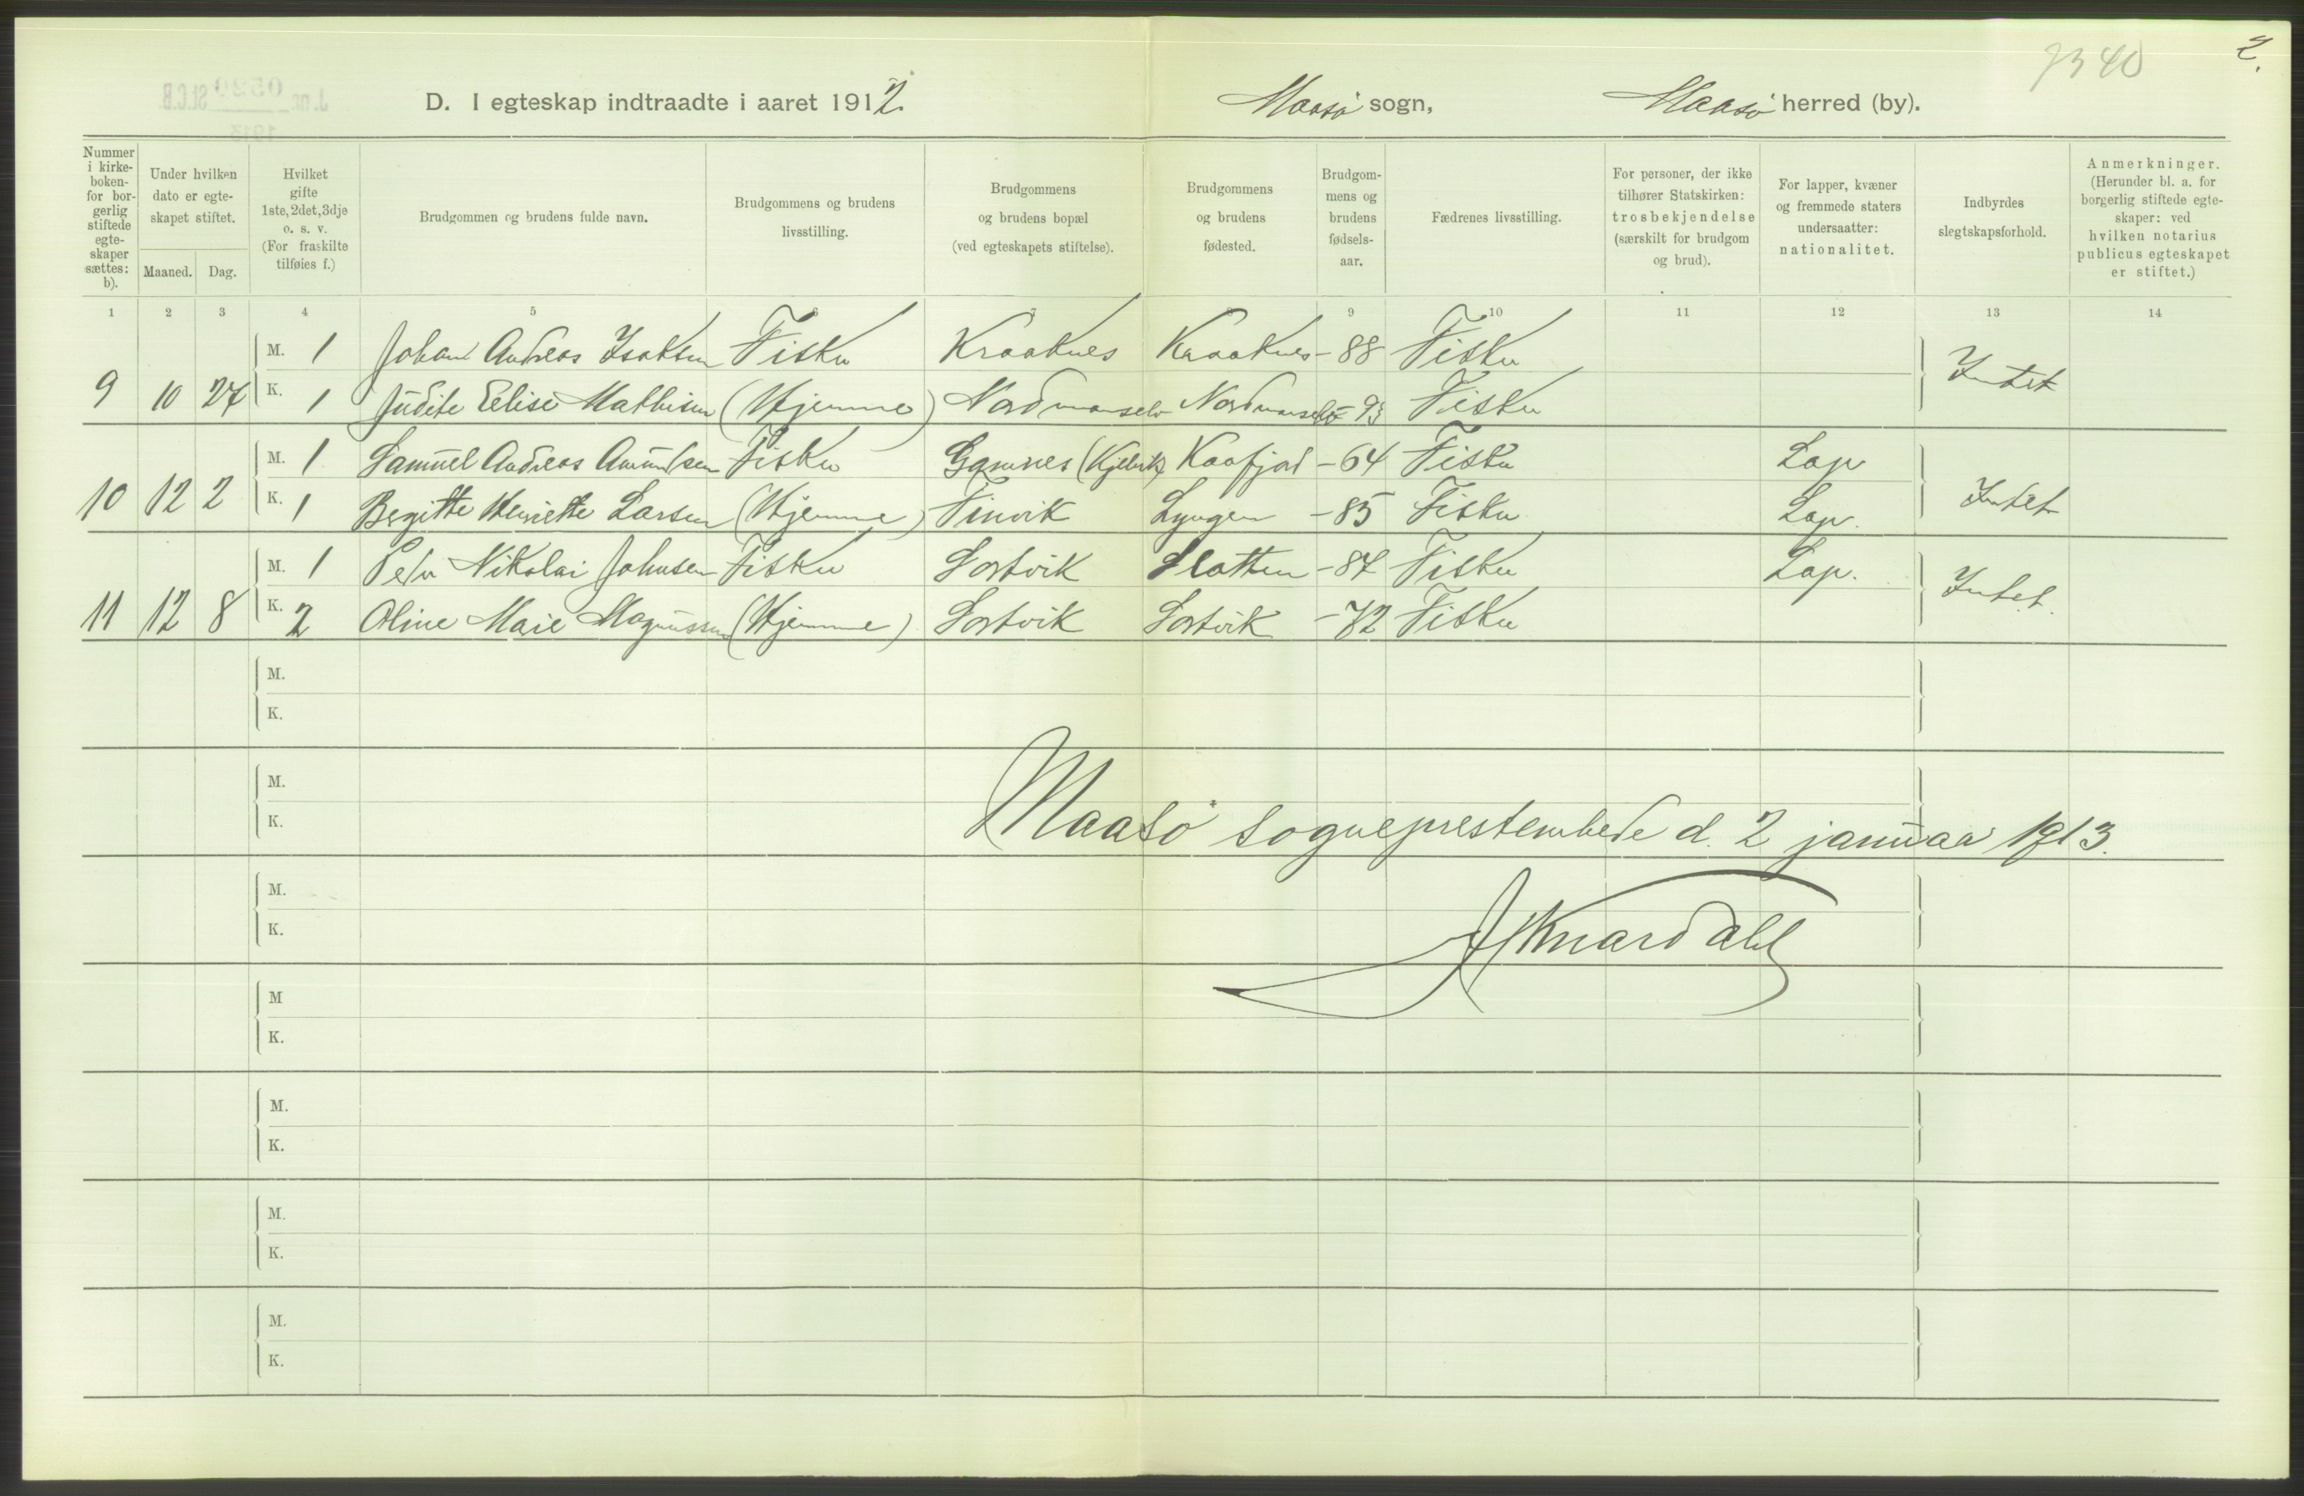 7340
2.
D. I egteskap indtraadte i aaret 1912 Maasø sogn, Maasø herred (by).
Nummer i kirke- boken- for bor- gerlig stiftede egte- skaper sættes: b).
Under hvilken dato er egte- skapet stiftet.
Maaned. Dag.
Hvilket gifte 1ste, 2det, 3dje o. s. v. (For fraskilte tilføies f.)
Brudgommen og brudens fulde navn.
Brudgommens og brudens livsstilling.
Brudgommens og brudens bopæl (ved egteskapets stiftelse).
Brudgommens og brudens fødested.
Brudgom- mens og brudens fødsels- aar.
Fædrenes livsstilling.
For personer, der ikke tilhører Statskirken: trosbekjendelse (særskilt for brudgom og brud).
For lapper, kvæner og fremmede staters undersaatter: nationalitet.
Indbyrdes slegtskapsforhold.
Anmerkninger. (Herunder bl. a. for borgerlig stiftede egte- skaper: ved hvilken notarius publicus egteskapet er stiftet.)
1 2 3 4 5 6 7 8 9 10 11 12 13 14
M. 1 Johan Andreas Isaksen Fisker Kraaknes Kraaknes -88 Fisker
9 10 27 K. 1 Judite Eelise Mathisen (Hjemme) Nordmanselv Nordmanselv -93 Fisker Intet
M. 1 Samuel Andreas Amundsen Fisker Gamnes (Kjelvik) Kaafjord -64 Fisker Lap
10 12 2 K. 1 Bergitte Henriette Larsen (Hjemme) Finvik Lyngen -85 Fisker Lap. Intet
M. 1 Peder Nikolai Johnsen Fisker Sortvik Slotten -87 Fisker Lap.
11 12 8 K. 2 Oline Marie Magnussen (Hjemme) Sortvik Sortvik -72 Fisker Intet.
M.
K.
M.
K.
Maasø sogneprestembede d. 2 januar 1913.
M.
K.
M
K.
M.
K.
M.
K.
M.
K.